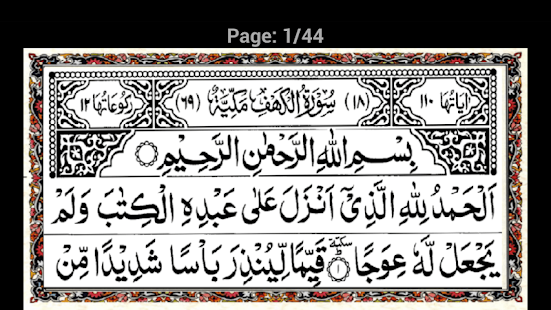 Page: 1/44
اٰیَاتُهَا ١١٠ (١٨) سُوْرَةُ الْكَهْفِ مَكِّیَّةٌ (٦٩) رُكُوْعَاتُهَا ١٢
بِسْمِ اللّٰهِ الرَّحْمٰنِ الرَّحِیْمِ
اَلْحَمْدُ لِلّٰهِ الَّذِیْۤ اَنْزَلَ عَلٰى عَبْدِهِ الْكِتٰبَ وَ لَمْ
یَجْعَلْ لَّهٗ عِوَجًا ؕ سكتة ١ قَیِّمًا لِّیُنْذِرَ بَاْسًا شَدِیْدًا مِّنْ